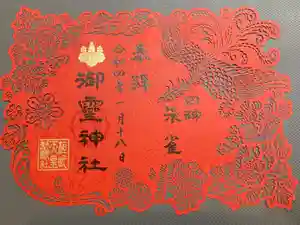 四神
朱雀
奉拝
令和四年一月十八日
御靈神社